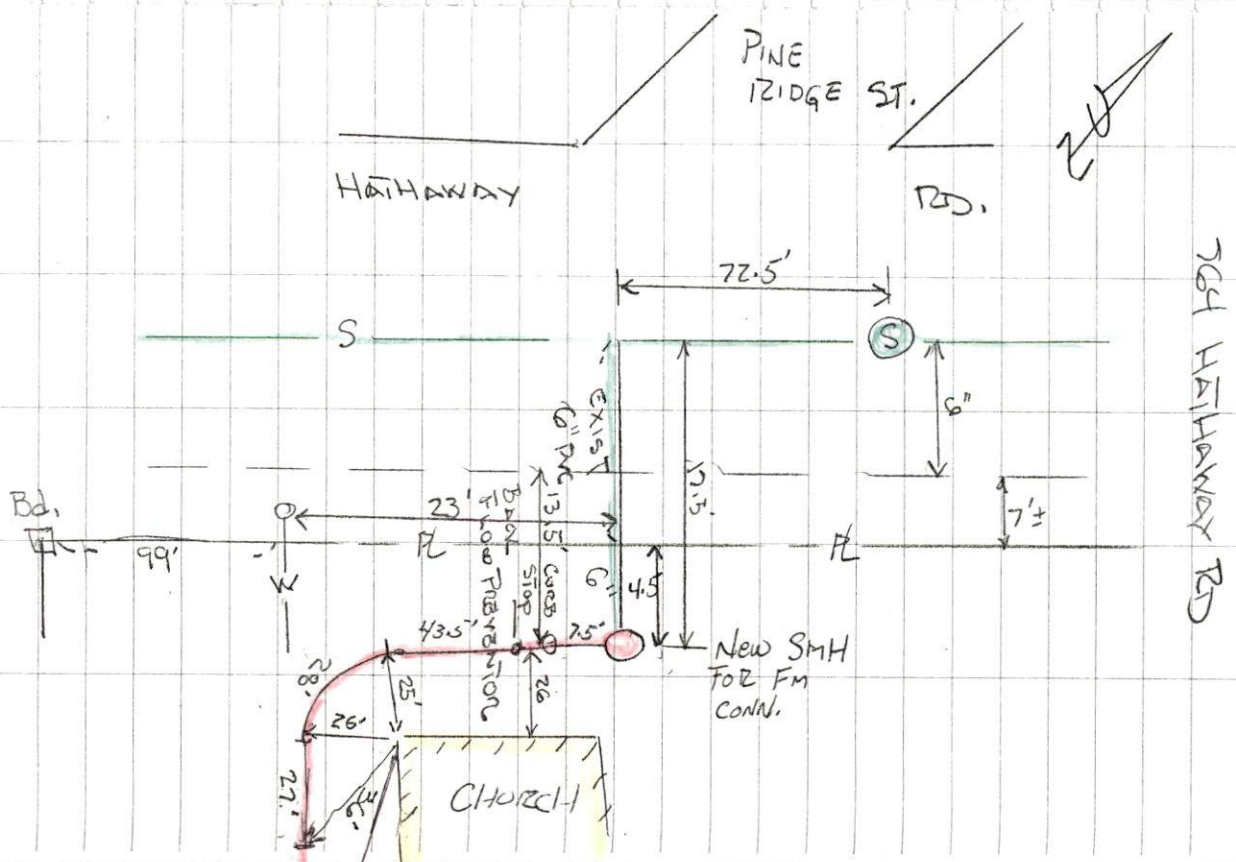 PINE
RIDGE ST.
N
HATHAWAY
RD.
764 HATHAWAY RD
72.5'
S
S
EXIST
6" PVC
6"
17.5'
Bd.
23'
13.5'
7'±
99'
PL
PL
BACK
FLOW PREVENTION
CURB
STOP
6"
4.5
43.5'
7.5'
NEW SMH
FOR FM
CONN.
28'
25'
26
26'
27'
CHURCH